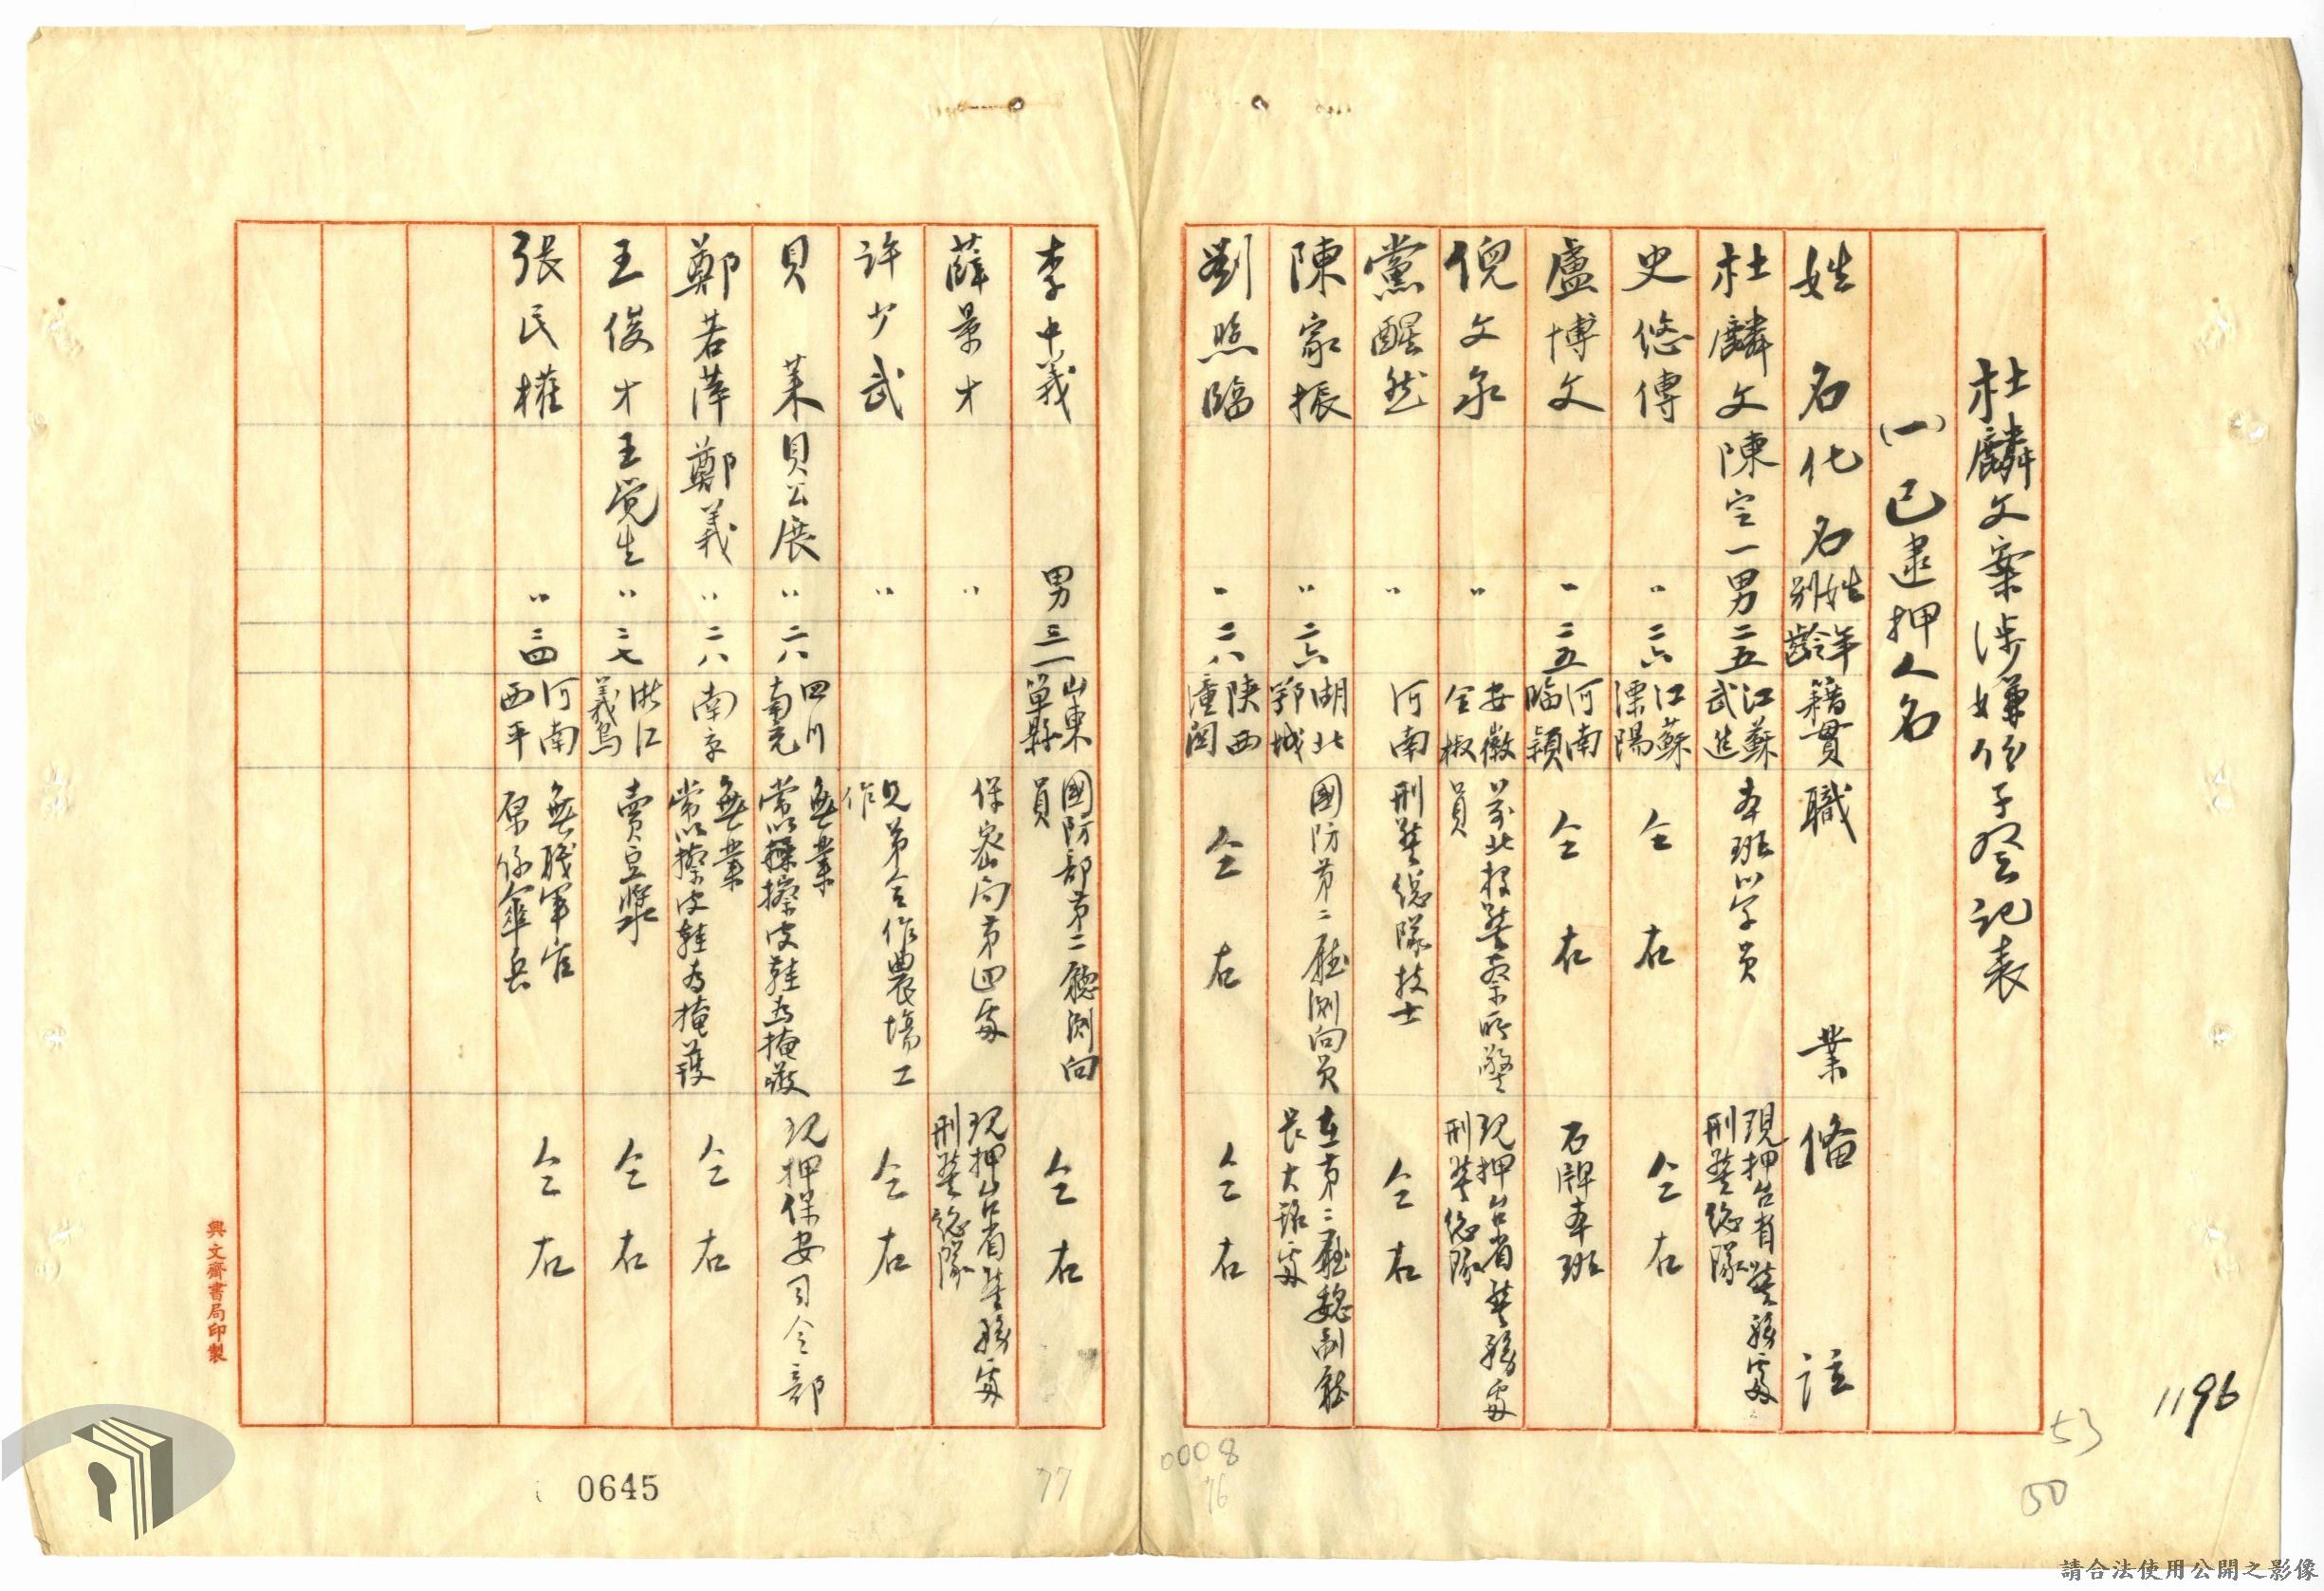 杜麟文案涉嫌份子登記表
(一)已逮押人名
姓名 化名 姓別 年齡 籍貫 職業 備註
杜麟文 陳定一 男 二五 江蘇武進 本班學員 現押台省警務處刑警總隊
史悠傳 〃 二六 江蘇溧陽 仝右 仝右
盧博文 〃 二五 河南臨潁 仝右 石牌本班
倪文永 〃 安徽全椒 北投警察所警員 現押台省警務處刑警總隊
黨醒然 〃 河南 刑警總隊技士 仝右
陳家振 〃 二六 湖北鄂城 國防第二廳測向員 在第二廳魏副廳長大銘處
劉照臨 〃 二八 陝西潼関 仝右 仝右
李中義 男 三一 山東單縣 國防部第二廳測向員 仝右
薛景才 〃 保密局第四處 現押台省警務處刑警總隊
許少武 〃 兄弟合作農場工作 仝右
貝萊 貝公展 〃 二八 四川南充 無業常以擦皮鞋為掩護 現押保安司令部
鄭若萍 鄭義 〃 二八 南京 無業常以擦皮鞋為掩護 仝右
王俊才 王覺生 〃 二七 浙江義烏 賣豆漿 仝右
張民權 〃 二四 河南西平 無職軍官原係傘兵 仝右
興文齋書局印製
0645
77
0008
76
53
50
1196
請合法使用公開之影像